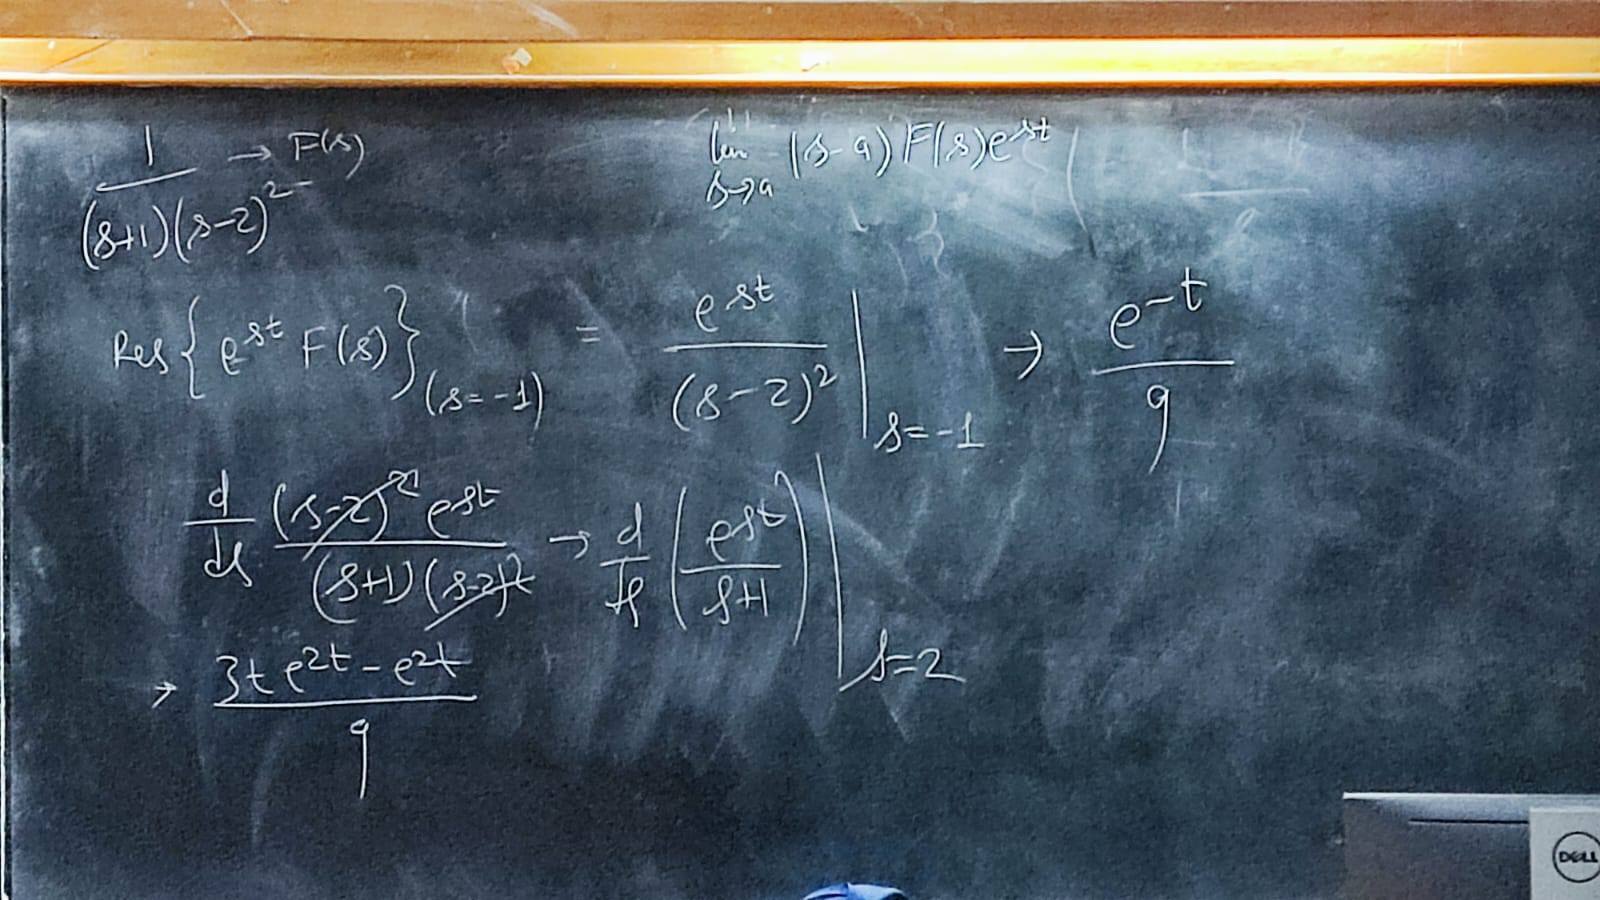 1/((s+1)(s-2)²) → F(s)
lim s→a (s-a) F(s)e^st
Res{e^st F(s)}(s=-1) = e^st/(s-2)² |s=-1 → e^-t/9
d/ds (s-2)² e^st/((s+1)(s-2)²) → d/ds (e^st/(s+1)) |s=2
→ (3t e^2t - e^2t)/9
DELL